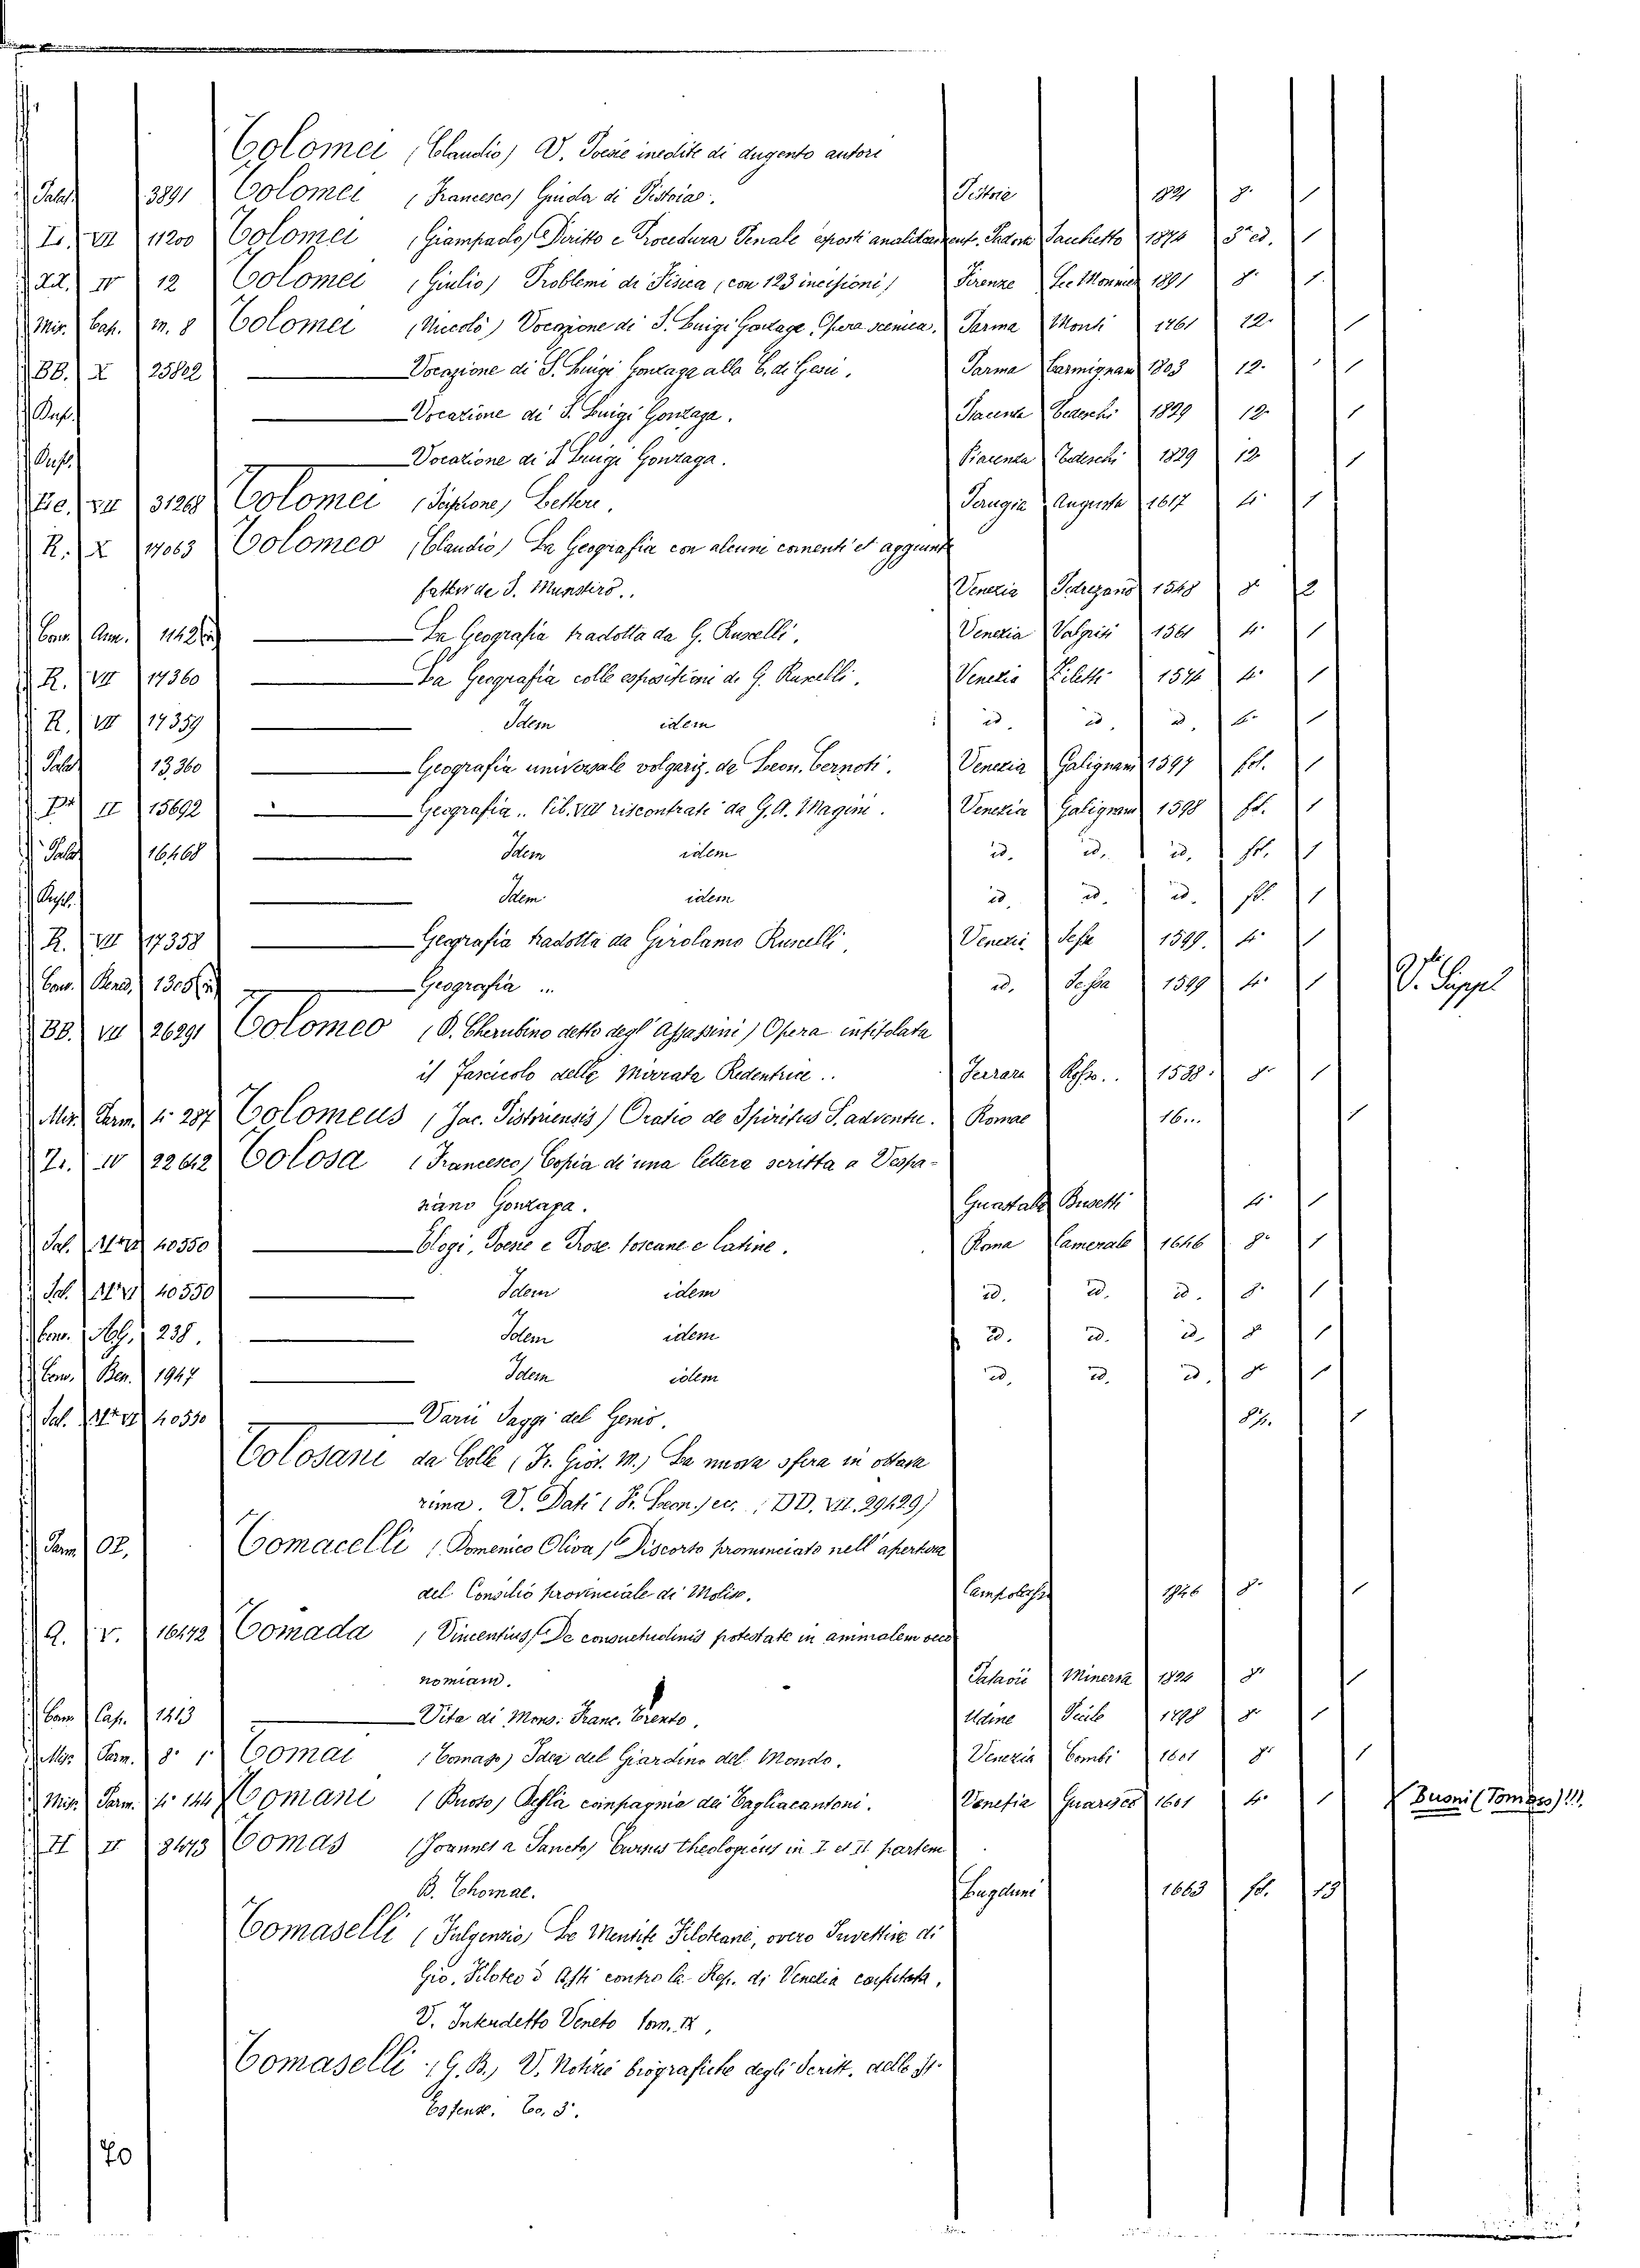 Tolomei (Claudio) V. Poesie inedite di dugento autori
Palat. 3891 Tolomei (Francesco) Guida di Pistoia. Pistoia 1821 8. 1
L. VII 11200 Tolomei (Giampaolo) Diritto e Procedura Penale esposti analiticament. Padova Sacchetto 1874 3a ed. 1
IV 12 Tolomei (Giulio) Problemi di Fisica (con 123 incisioni) Firenze Le Monnier 1891 8. 1
Mis. Cap. m. 8 Tolomei (Niccolò) Vocazione di S. Luigi Gonzaga, Opera scenica. Parma Monti 1761 12. 1
BB. X 25802 Vocazione di S. Luigi Gonzaga alla C. di Gesù. Parma Carmignani 1803 12. 1
Vocazione di S. Luigi Gonzaga. Piacenza Tedeschi 1829 12. 1
Vocazione di S. Luigi Gonzaga. Piacenza Tedeschi 1829 12 1
VII 31268 Tolomei (Scipione) Lettere. Perugia Augusta 1617 4. 1
R. X 17063 Tolomeo (Claudio) La Geografia con alcuni comenti et aggiunte
fatte da S. Munstero.. Venezia Pedrezano 1548 8. 2
Com. Ann. 1142 La Geografia tradotta da G. Ruscelli. Venezia Valgrisi 1561 4. 1
R. VII 17360 La Geografia colle espositioni di G. Ruscelli. Venezia Ziletti 1574 4. 1
R. VII 17359 Idem idem id. id. id. 4. 1
Palat. 13360 Geografia universale volgariz. da Leon. Cernoti. Venezia Galignani 1597 fol. 1
II 15692 Geografia.. lib. VIII riscontrati da G. A. Magini. Venezia Galignani 1598 fol. 1
Palat. 16468 Idem idem id. id. id. fol. 1
Idem idem id. id. id. fol. 1
R. VII 17358 Geografia tradotta da Girolamo Ruscelli. Venezia Sessa 1599. 4. 1
Com. Bened. 1305 Geografia ... id. Sessa 1599 4. 1 V. Suppl
BB. VII 26291 Tolomeo (D. Cherubino detto degl' Assassini) Opera intitolata
il Fascicolo della Mirrata Redentrice.. Ferrara Rossi.. 1588. 8. 1
Mis. Parm. 4. 287 Tolomeus (Jac. Pistoriensis) Oratio de Spiritus S. adventu. Romae 16... 1
IV 22642 Tolosa (Francesco) Copia di una lettera scritta a Vespa-
siano Gonzaga. Guastalla Busetti 4. 1
Sal. 40550 Elogi, Poesie e Prose toscane e latine. Roma Camerale 1646 8. 1
Sal. 40550 Idem idem id. id. id. 8. 1
238. Idem idem id. id. id. 8. 1
Conv. Ben. 1947 Idem idem id. id. id. 8. 1
Sal. 40550 Varii Saggi del Genio. 1
Tolosani da Colle (Fr. Giov. M.) La nuova sfera in ottava
rima. V. Dati (Fr. Leon.) ec. (DD. VII. 29429)
Parm. 02. Tomacelli (Domenico Oliva) Discorso pronunciato nell'apertura
del Consilio provinciale di Molise. Campobasso 8. 1
Q. V. 16472 Tomada (Vincentius) De consuetudinis potestate in animalem oeco
nomiam. Patavii Minerva 1824 8. 1
Com. Cap. 1413 Vita di Mons. Franc. Trento. Udine 1798 8. 1
Mis. Parm. 8. 1 Tomai (Tomaso) Idea del Giardino del Mondo. Venezia Combi 1601 8. 1
Mis. Parm. 4. 144 Tomani (Buoso) Della compagnia dei Tagliacantoni. Venetia Guarisco 1601 4. 1 X Buoni (Tomaso)!!!.
H II 8473 Tomas (Joannes a Sancto) Cursus theologicus in I et II partem
B. Thomae. Lugduni 1663 fol. 13
Tomaselli (Fulgenzio) Le Mentite Filoteane, overo Invettiva di
Gio. Filoteo d'Asti contro la Rep. di Venetia confutata.
V. Interdetto Veneto tom. II.
Tomaselli (G. B.) V. Notizie biografiche degli Scritt. dello St.
Estense. To. 3.
70